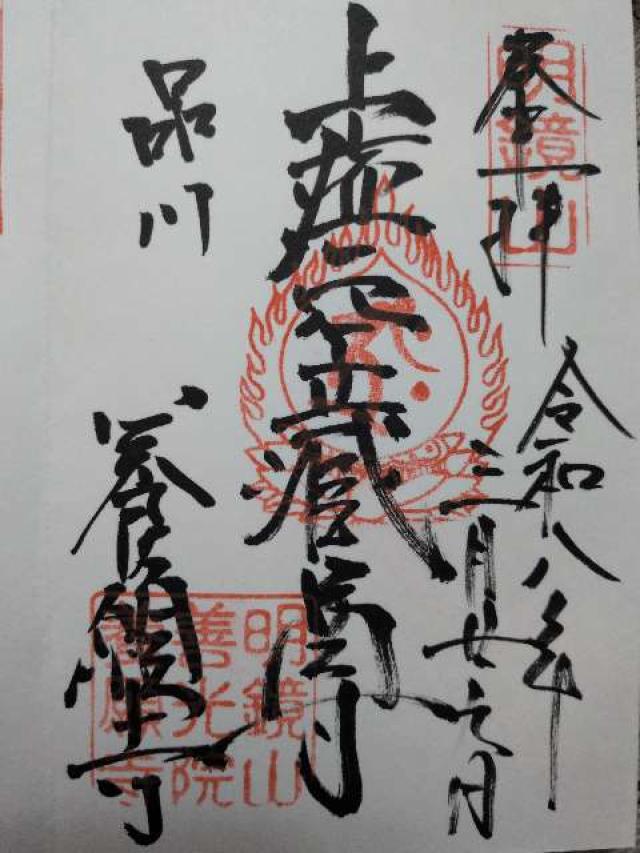 奉拝
明鏡山
令和八年
三月廿七日
虚空蔵尊
品川
養願寺
明鏡山
善光院
養願寺